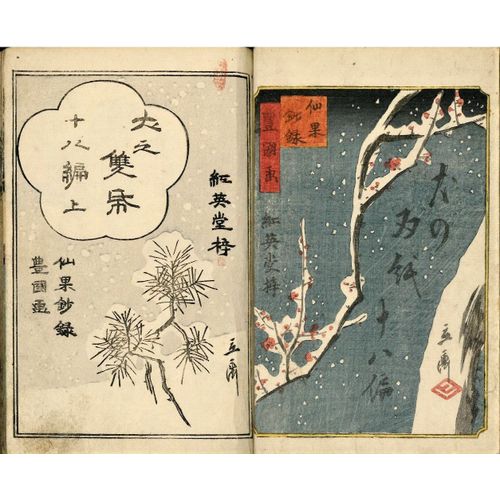 仙果
鈔録
豊國画
犬の
双紙
十八編
立齋
紅英堂梓
犬之
雙帋
十八編上
紅英堂梓
仙果鈔録
豊國画
立齋